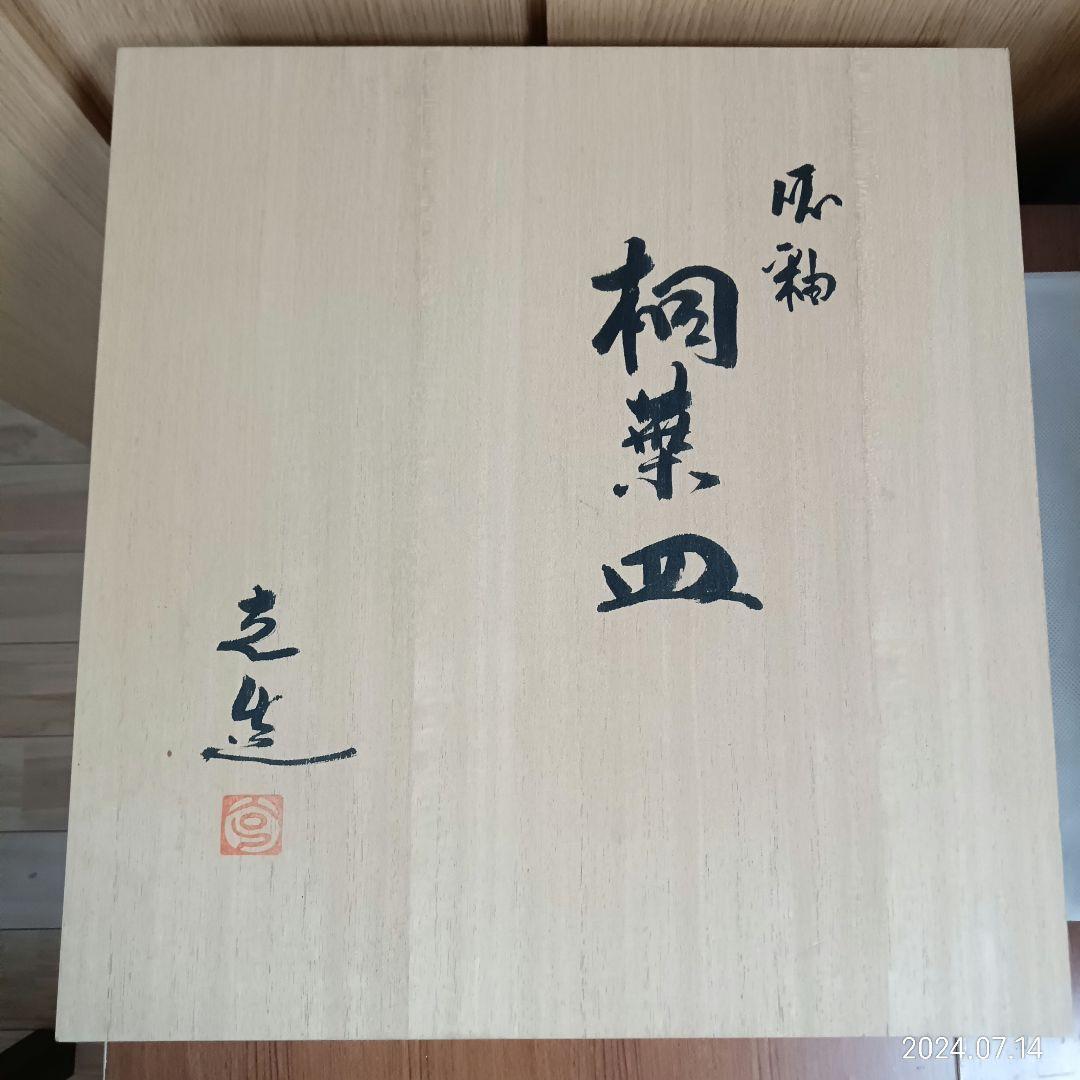 釉
桐葉皿
造
2024.07.14